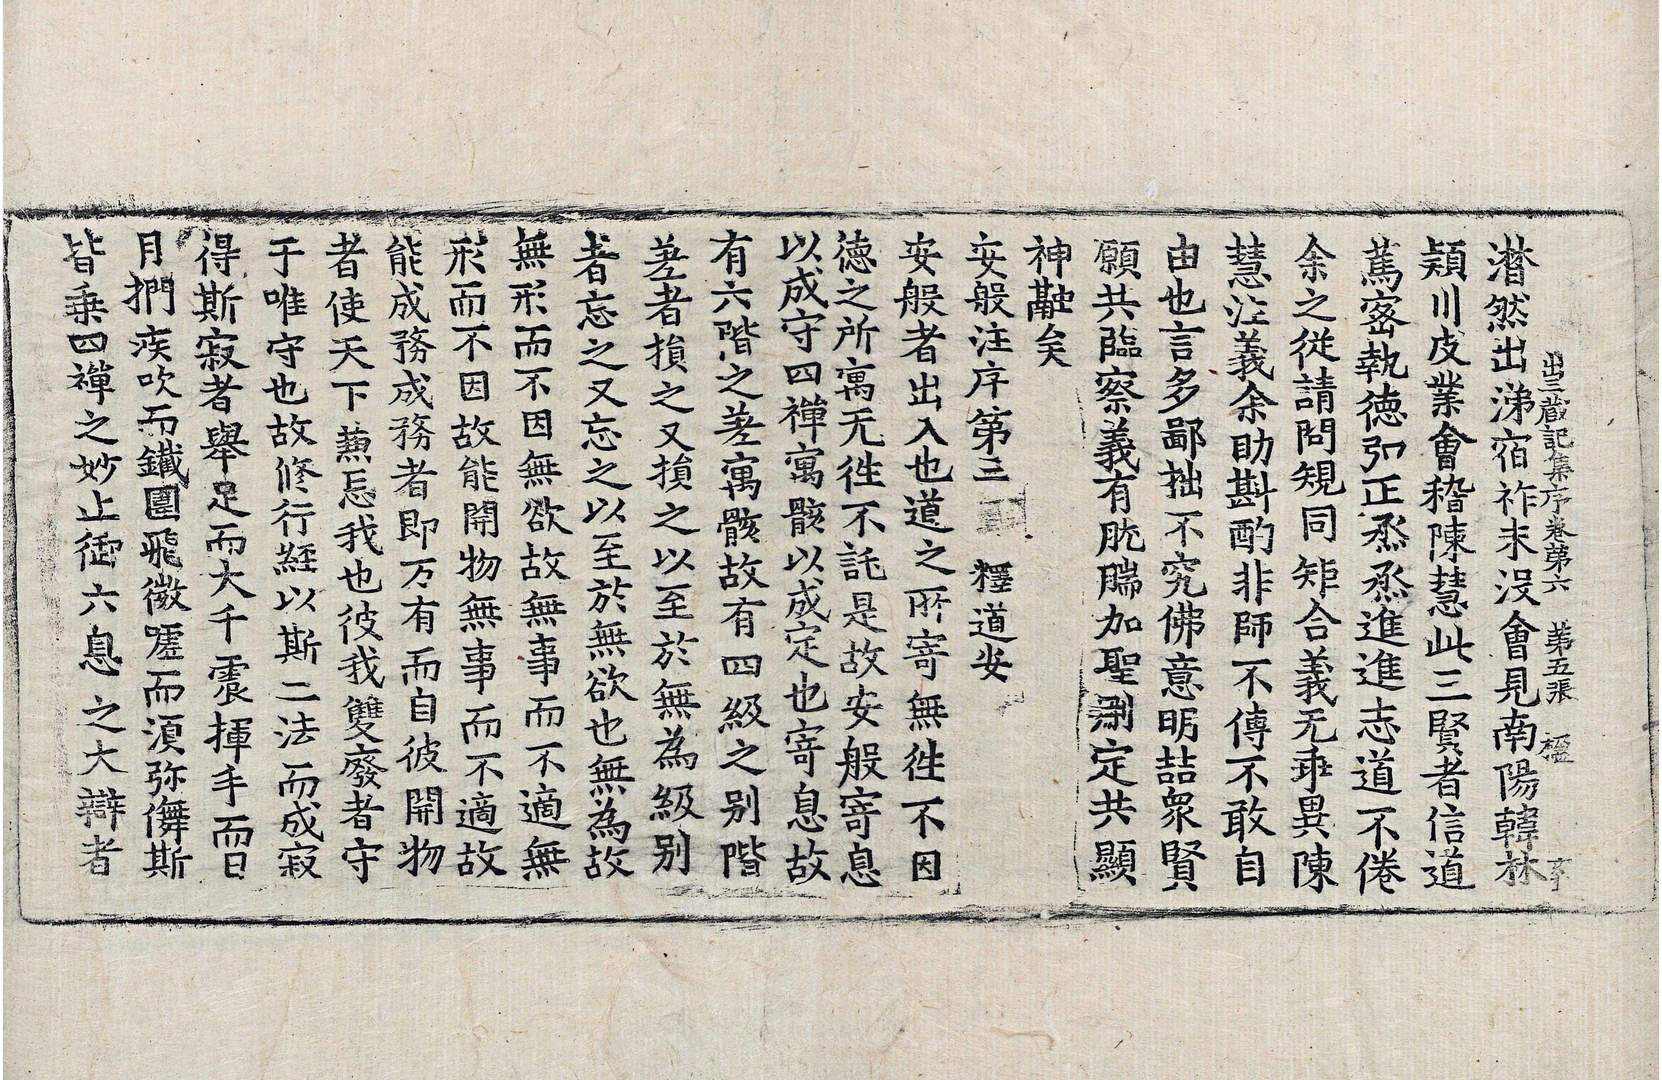 出三蔵記集序卷第六 第五張 楹
潸然出涕宿祚未沒會見南陽韓林
頴川皮業會稽陳慧此三賢者信道
蔫宻執德弘正烝烝進進志道不倦
余之從請問規同矩合義无乖異陳
慧注義余助斟酌非師不傳不敢自
由也言多鄙拙不究佛意明喆衆賢
願共臨察義有胧腨加聖刪定共顯
神融矣
安般注序第三 釋道安
安般者出入也道之所寄無徃不因
德之所寓无徃不託是故安般寄息
以成守四禪寓骸以成定也寄息故
有六階之差寓骸故有四級之別階
差者損之又損之以至於無為級別
者忘之又忘之以至於無欲也無為故
無形而不因無欲故無事而不適無
形而不因故能開物無事而不適故
能成務成務者即万有而自彼開物
者使天下𠔥忘我也彼我雙廢者守
于唯守也故修行經以斯二法而成寂
得斯寂者舉足而大千震揮手而日
月捫疾吹而鐵圍飛微噓而湏弥儛斯
皆乗四禪之妙止御六息之大辯者